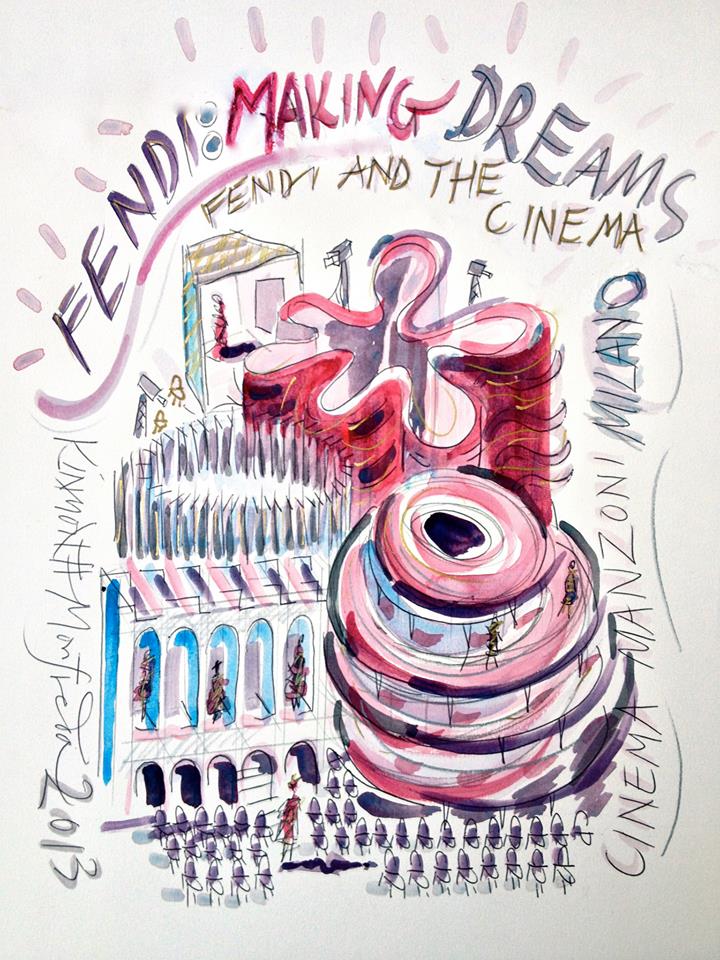 FENDI: MAKING DREAMS
FENDI AND THE
CINEMA
CINEMA MANZONI MILANO
KINMONTH Monfreda 2013